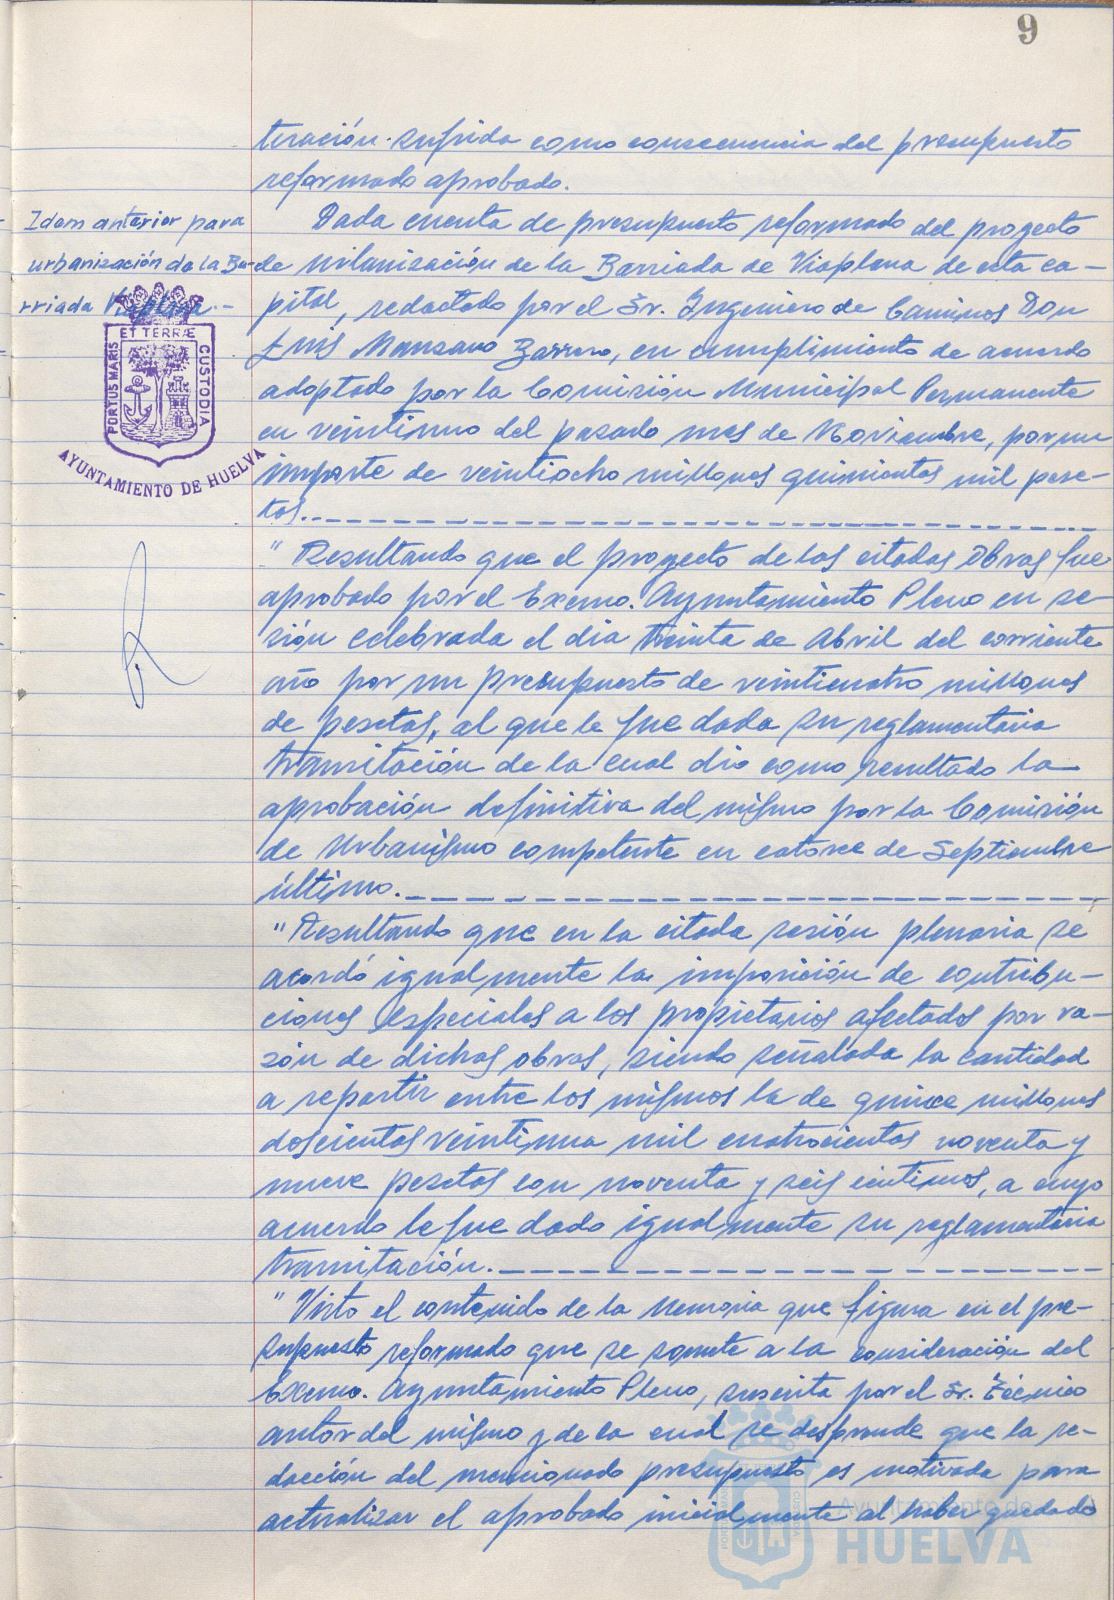 9
teración sufrida como consecuencia del presupuesto
reformado aprobado.
Idem anterior para
urbanización de la Ba-
rriada Viaplana.-
Dada cuenta de presupuesto reformado del proyecto
de urbanización de la Barriada de Viaplana de esta ca-
pital, redactado por el Sr. Ingeniero de Caminos Don
Luis Manzano Barrero, en cumplimiento de acuerdo
adoptado por la Comisión Municipal Permanente
en veintiuno del pasado mes de Noviembre, por un
importe de veintiocho millones quinientas mil pese-
tas.
PORTUS MARIS
ET TERRÆ
CUSTODIA
AYUNTAMIENTO DE HUELVA
" Resultando que el proyecto de las citadas Obras fue
aprobado por el Excmo. Ayuntamiento Pleno en se-
sión celebrada el día treinta de Abril del corriente
año por un presupuesto de veinticuatro millones
de pesetas, al que le fue dada su reglamentaria
tramitación de la cual dio como resultado la
aprobación definitiva del mismo por la Comisión
de Urbanismo competente en catorce de Septiembre
último.
" Resultando que en la citada sesión plenaria se
acordó igualmente la imposición de contribu-
ciones especiales a los propietarios afectados por ra-
zón de dichas obras, siendo señalada la cantidad
a repartir entre los mismos la de quince millones
doscientas veintiuna mil cuatrocientas noventa y
nueve pesetas con noventa y seis centimos, a cuyo
acuerdo le fue dado igualmente su reglamentaria
tramitación.
" Visto el contenido de la Memoria que figura en el pre-
supuesto reformado que se somete a la consideración del
Excmo. Ayuntamiento Pleno, suscrita por el Sr. Técnico
autor del mismo y de la cual se desprende que la re-
dacción del mencionado presupuesto es motivada para
actualizar el aprobado inicialmente al haber quedado
Ayuntamiento de
HUELVA